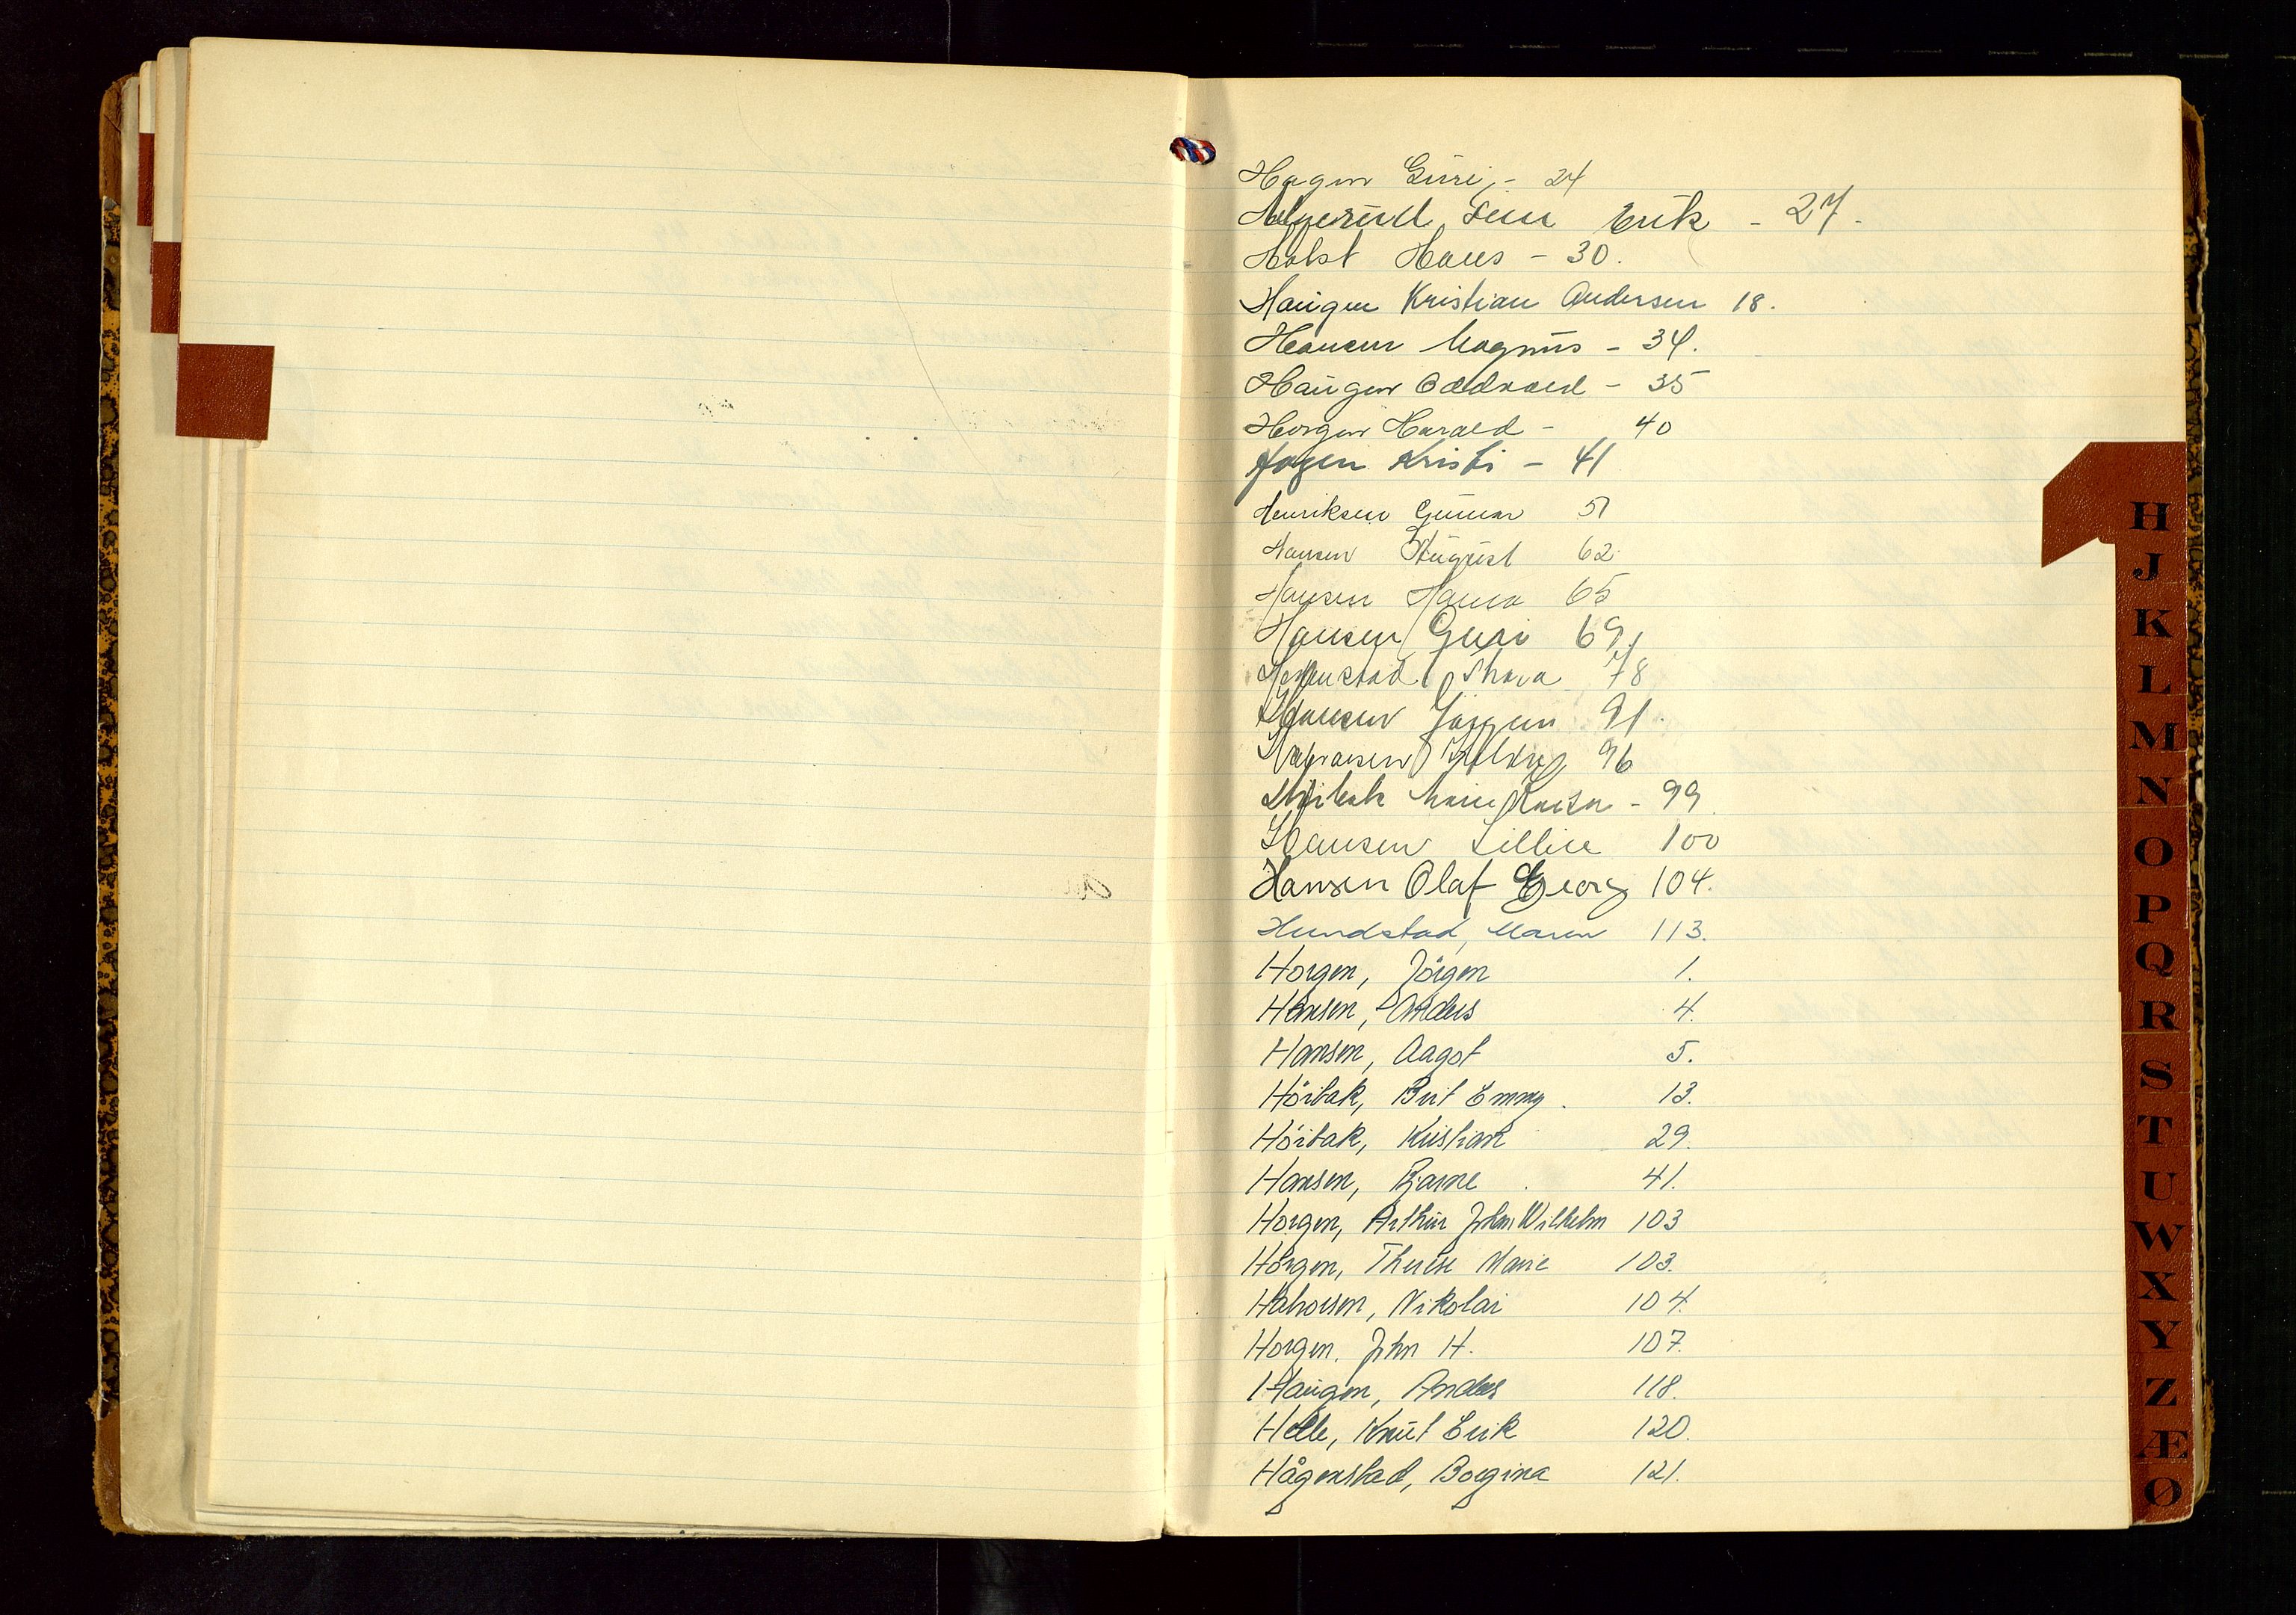 Hagen Guri, - 24
Erik - 27.
Holst Hans - 30.
Haugen Kristian Andersen 18.
Hansen Magnus - 34.
Haugen Oddvard - 35
Horgen Harald - 40
Hagen Kristi - 41
Henriksen Gunnar 51
Hansen August 62
Hansen Hanna 65
Hansen Guri 69.
Thora 78
Hansen Jørgen 91.
Halvorsen 96
Höibak Marie - 99.
Hansen Lillie 100
Hansen Olaf Georg 104.
Hundstad, Maren 113.
Horgen, Jörgen 1.
Hansen, Anders 4.
Hansen, Aagot 5.
Höibak, Brit Emmy. 13.
Höibak, Kristian 29.
Hansen, Bjarne . 41.
Horgen, Arthur John Wilhelm 103
Horgen, Therese Marie 103.
Halvorsen, Nikolai 104.
Horgen. John H. 107.
Haugen, Anders 118.
Helle, Knut Erik 120.
Hågenstad, Borgina 121.
H
J
K
L
M
N
O
P
Q
R
S
T
U
W
X
Y
Z
Æ
Ø